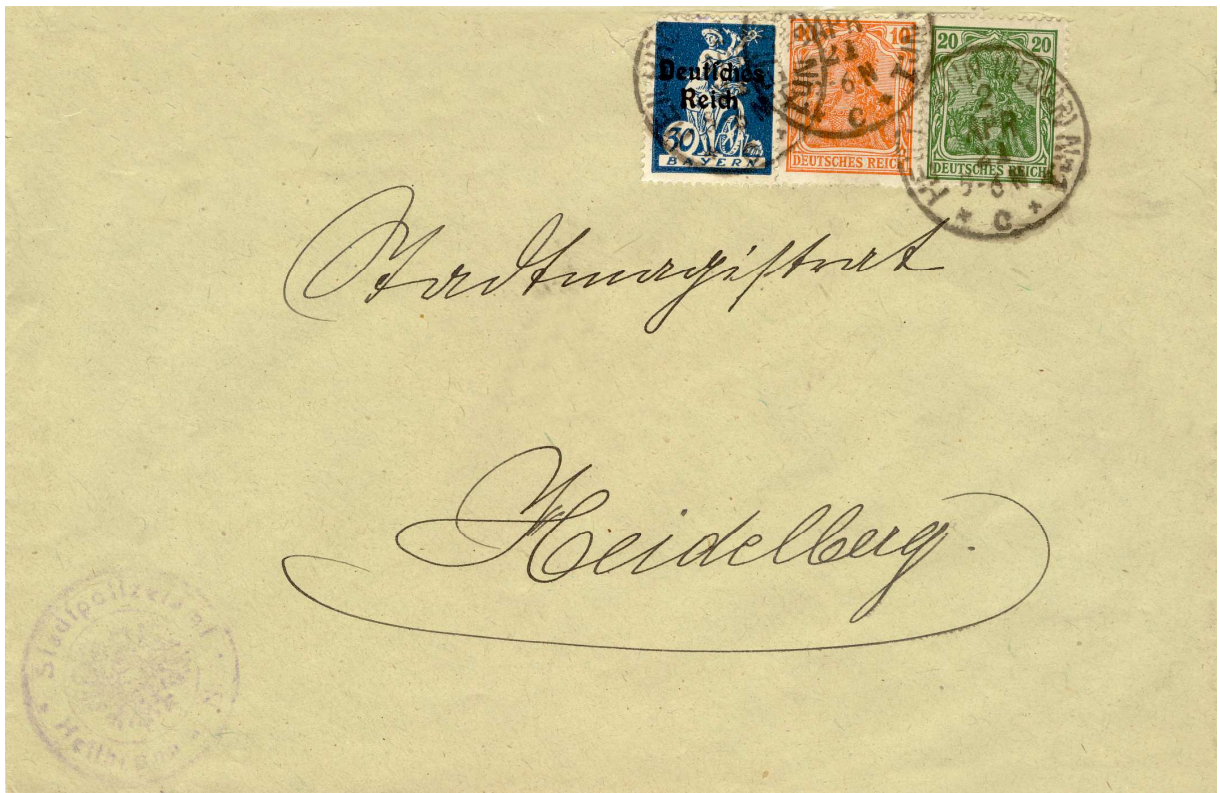 Deutsches
Reich
30
BAYERN
10
DEUTSCHES REICH
20 20
DEUTSCHES REICH
2
APR
21
5-6 N
* C *
Stadtmagistrat
Heidelberg.
Stadtpolizeiamt